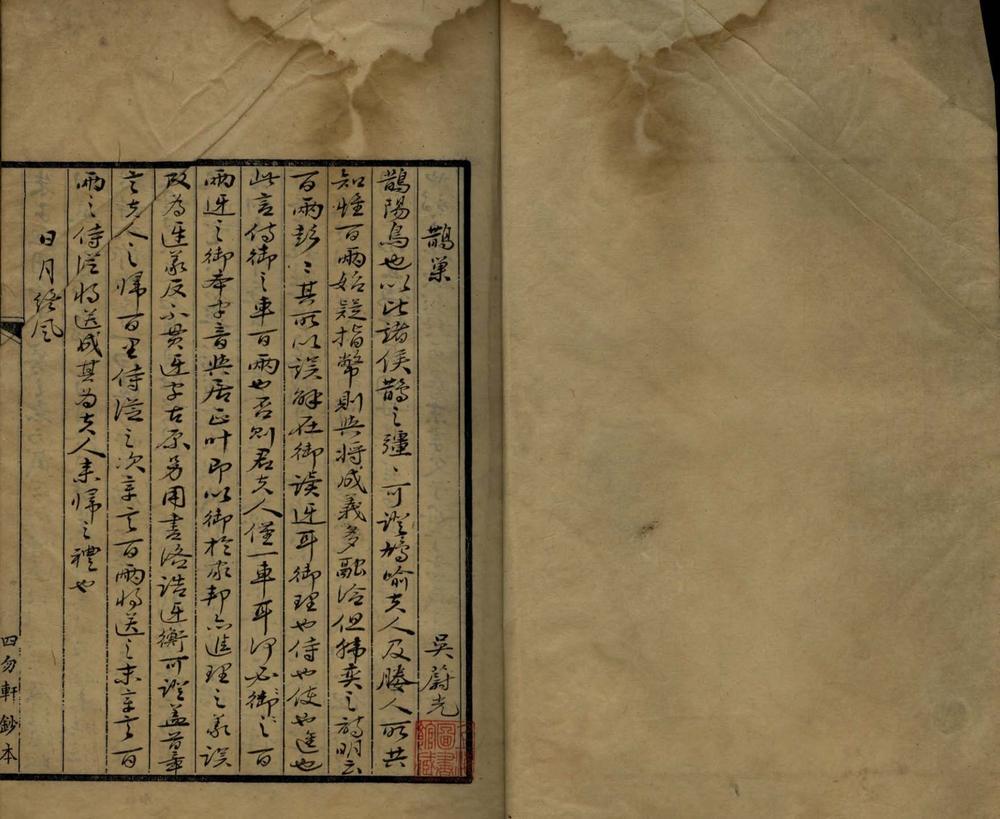 鵲巢 吳蔚光
鵲陽鳥也以比諸侯鵲之彊彊可證鳩喻夫人及媵人所共
知惟百兩始疑指幣則與將成義多融洽但韓奕之詩明云
百兩彭彭其所以誤解在御讀迓耳御理也侍也使也進也
此言侍御之車百兩也否則君夫人僅一車耳何必御之百
兩迓之御本字音與居正叶即以御於家邦亦進理之義誤
改為迓義反不貫迓字古原另用書洛誥迓衡可證蓋首章
言夫人之歸百里侍從之次章言百兩將送之末章言百
兩之侍從將送成其為夫人来歸之禮也
日月終風
四勿軒鈔本
圖書